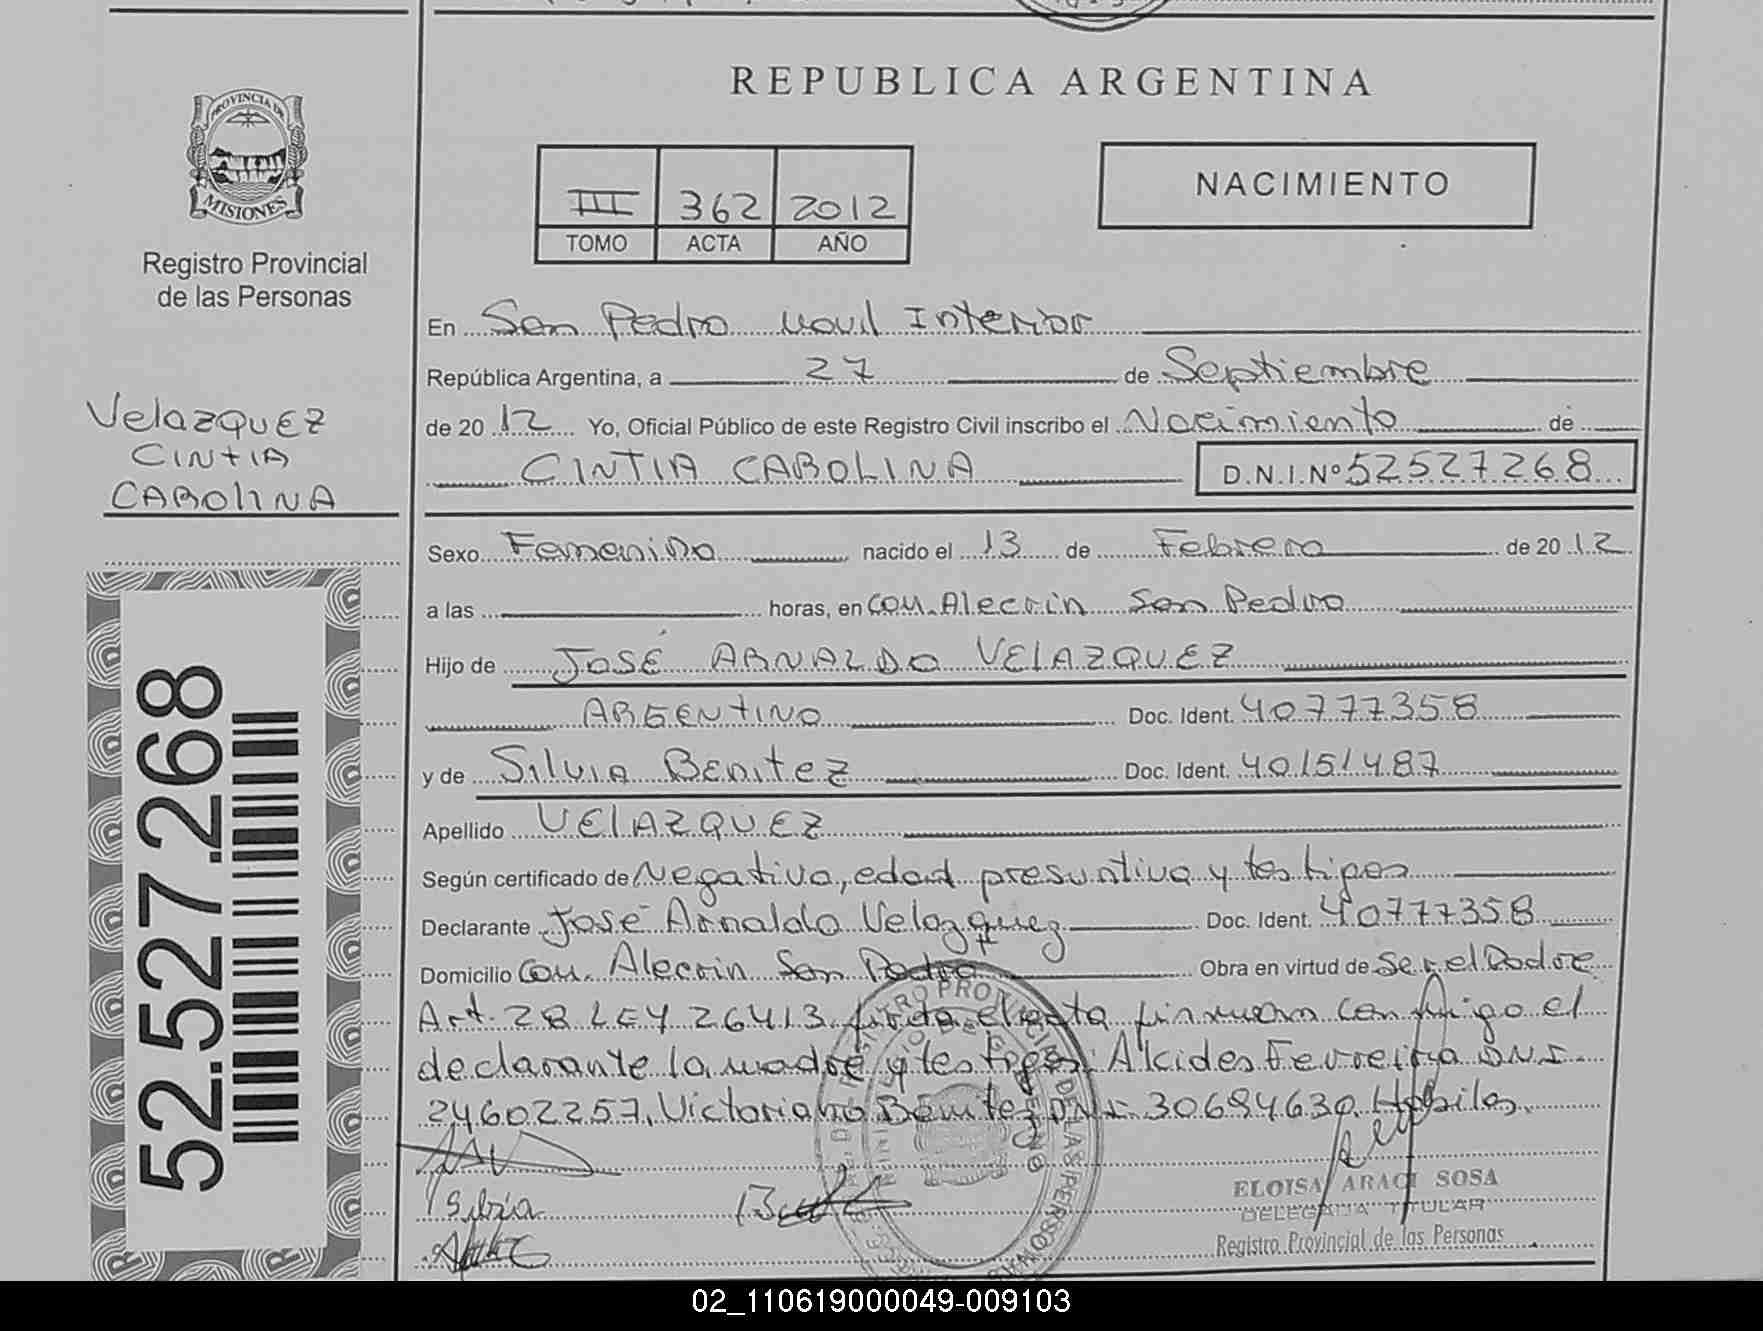 REPUBLICA ARGENTINA
PROVINCIA DE
MISIONES
Registro Provincial
de las Personas
III 362 2012
TOMO ACTA AÑO
NACIMIENTO
Velazquez
CINtIA
CAROlINA
52.527.268
En San Pedro Movil Interior
República Argentina, a 27 de Septiembre
de 20 12 Yo, Oficial Público de este Registro Civil inscribo el Nacimiento de
CINTIA CAROLINA D.N.I.Nº 52527268
Sexo Femenino nacido el 13 de Febrero de 20 12
a las horas, en Com. Alecrin San Pedro
Hijo de JOSÉ ARNALDO VELAZQUEZ
ARGENTINO Doc. Ident. 40777358
y de Silvia Benitez Doc. Ident. 40151487
Apellido VELAZQUEZ
Según certificado de Negativo, edad presuntiva y testigos
Declarante José Arnaldo Velazquez Doc. Ident. 40777358
Domicilio Com. Alecrin San Pedro Obra en virtud de Ser el Padre
Art. 28 LEY 26413 leida el acta firman conmigo el
declarante la madre y testigos: Alcides Ferreira DNI
24602257, Victoriano Benitez DNI 30684630 Habiles.
Silvia
ELOISA ARACI SOSA
DELEGADA TITULAR
Registro Provincial de las Personas
02_110619000049-009103